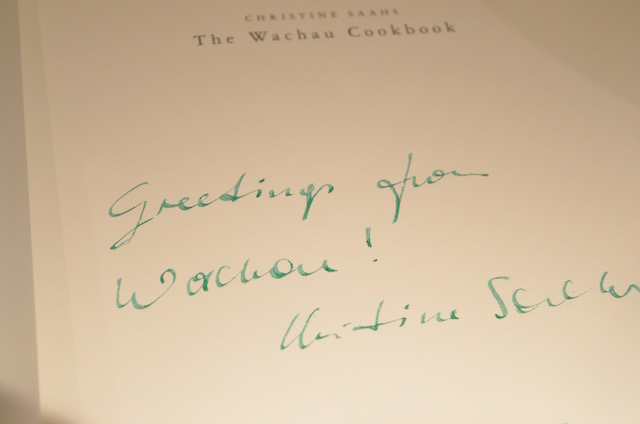 CHRISTINE SAAHS
The Wachau Cookbook
Greetings from
Wachau!
Christine Saahs